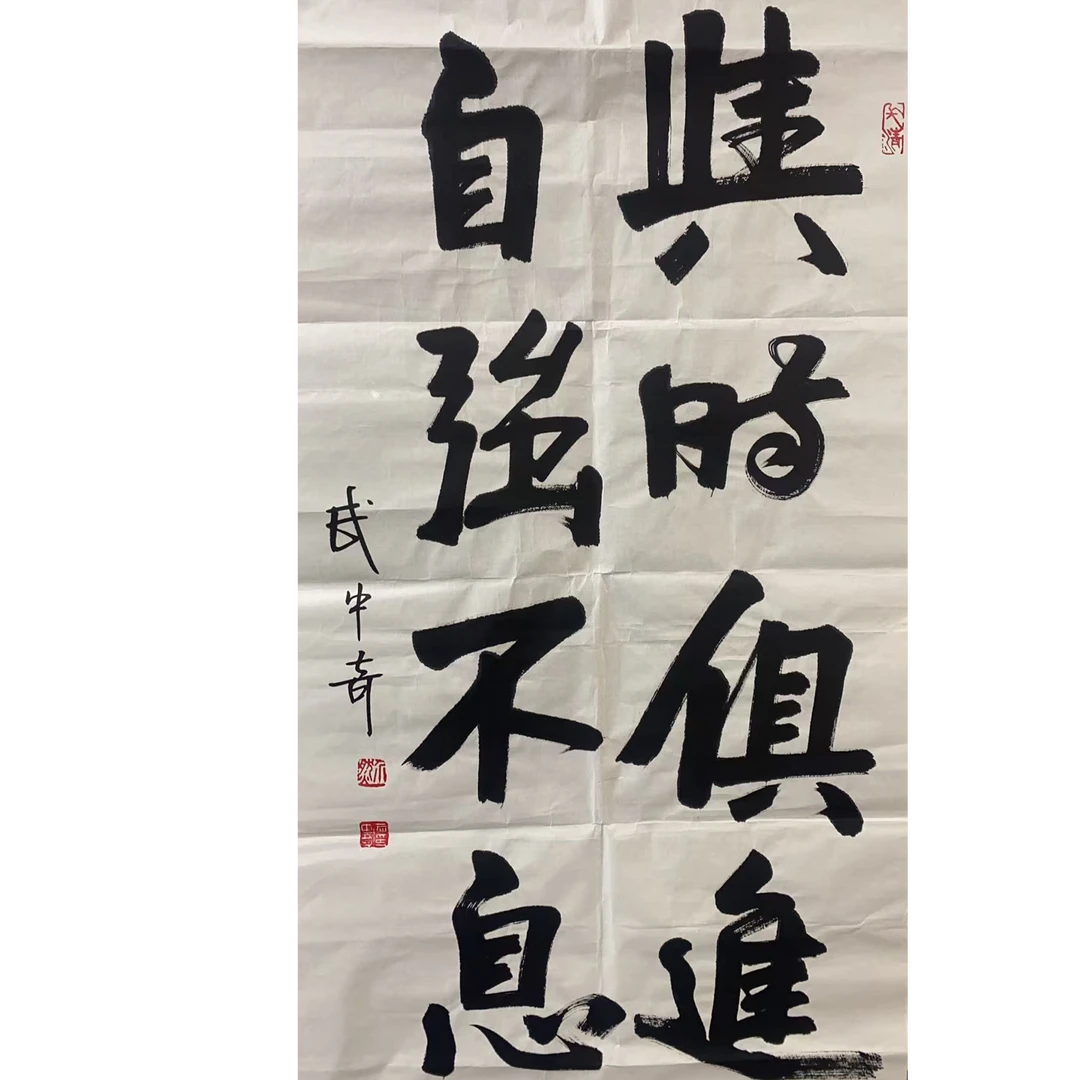 與時俱進
自強不息
武中奇